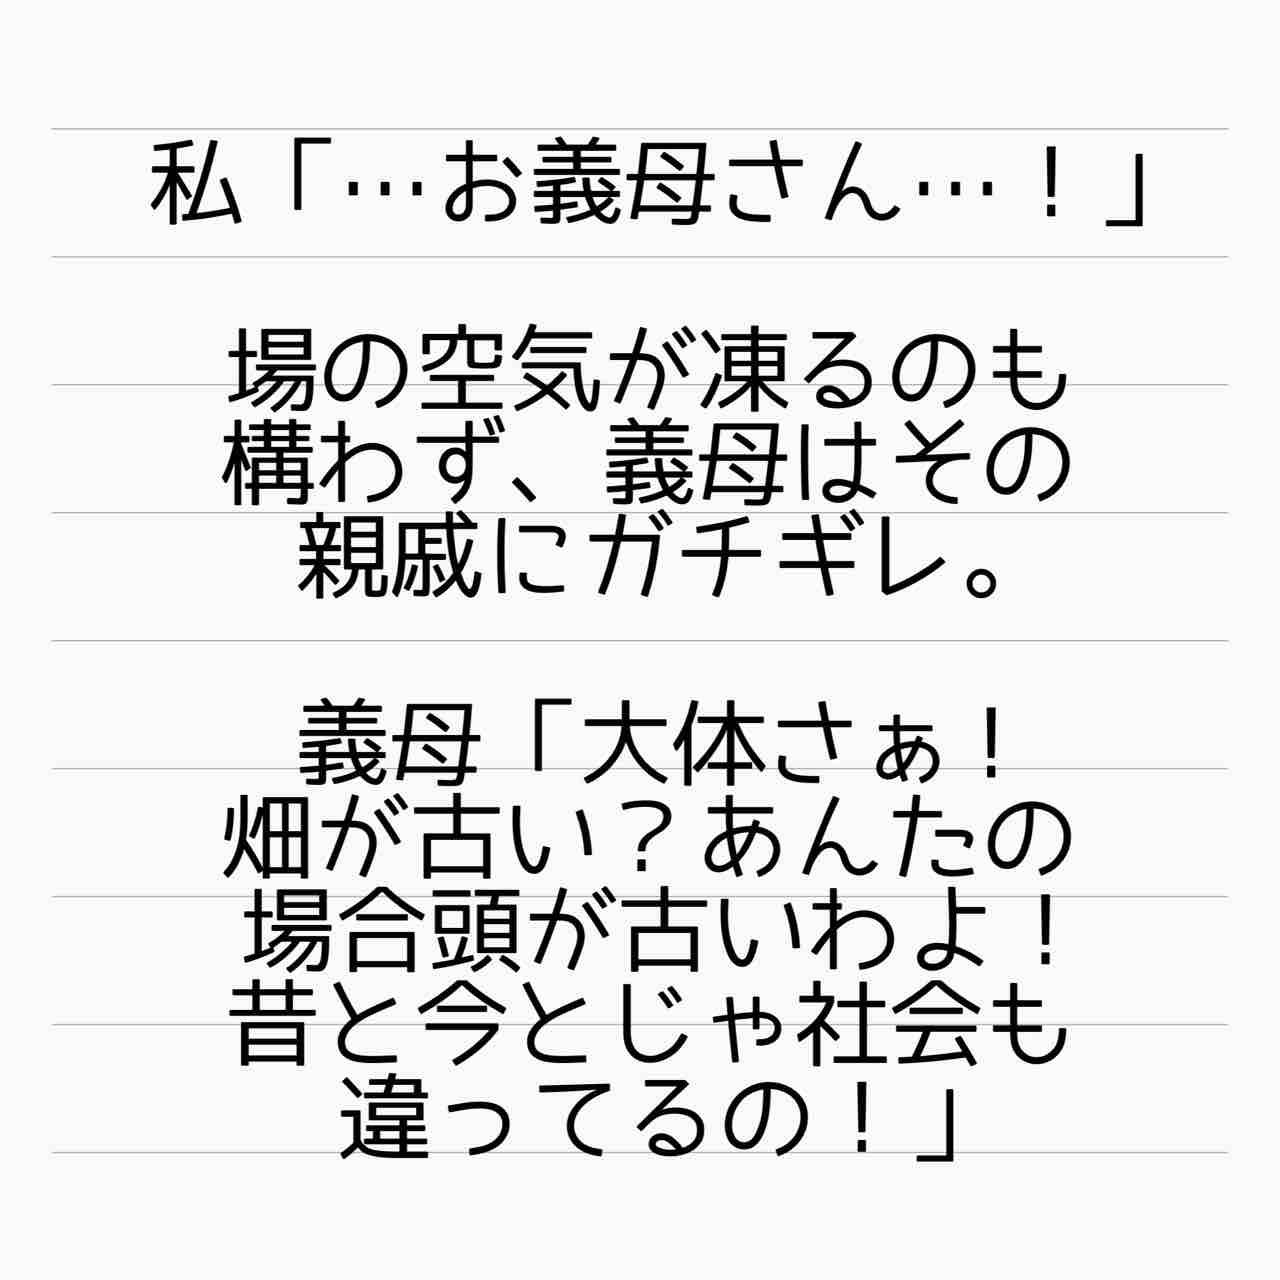 私「…お義母さん…！」
場の空気が凍るのも
構わず、義母はその
親戚にガチギレ。
義母「大体さぁ！
畑が古い？あんたの
場合頭が古いわよ！
昔と今とじゃ社会も
違ってるの！」